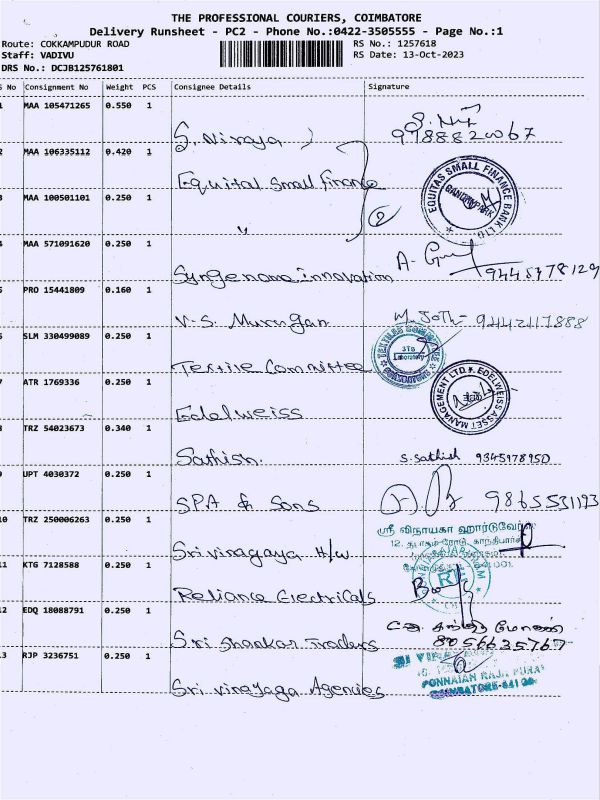 THE PROFESSIONAL COURIERS, COIMBATORE
Delivery Runsheet - PC2 - Phone No.:0422-3505555 - Page No.:1
Route: COKKAMPUDUR ROAD
RS No.: 1257618
Staff: VADIVU
RS Date: 13-Oct-2023
DRS No.: DCJB125761801
S No Consignment No Weight PCS Consignee Details Signature
1 MAA 105471265 0.550 1
S. Niraja
9788820067
2 MAA 106335112 0.420 1
Equital Small Finance
EQUITAS SMALL FINANCE BANK LTD
3 MAA 100501101 0.250 1
〃
2
4 MAA 571091620 0.250 1
Syngenome Innovation
5 PRO 15441809 0.160 1
V.S. Murugan
M. Joth- 9442117888
6 SLM 330499089 0.250 1
Textile Committee
TEXTILES COMMITTEE
Laboratory
COIMBATORE
7 ATR 1769336 0.250 1
Edelweiss
EDELWEISS ASSET MANAGEMENT LTD
8 TRZ 54023673 0.340 1
Sathish.
S. Sathish
9 UPT 4030372 0.250 1
SPA & Sons
9865531193
10 TRZ 250006263 0.250 1
Sri vinagaya H/w
ஸ்ரீ விநாயகா ஹார்டுவேர்ஸ்
641001.
11 KTG 7128588 0.250 1
Reliance Electricals
12 EDQ 18088791 0.250 1
Sri Shankar Traders
8056635767
13 RJP 3236751 0.250 1
Sri Vinayaga Agencies
PONNAIAN RAJA PURAM
COIMBATORE-641